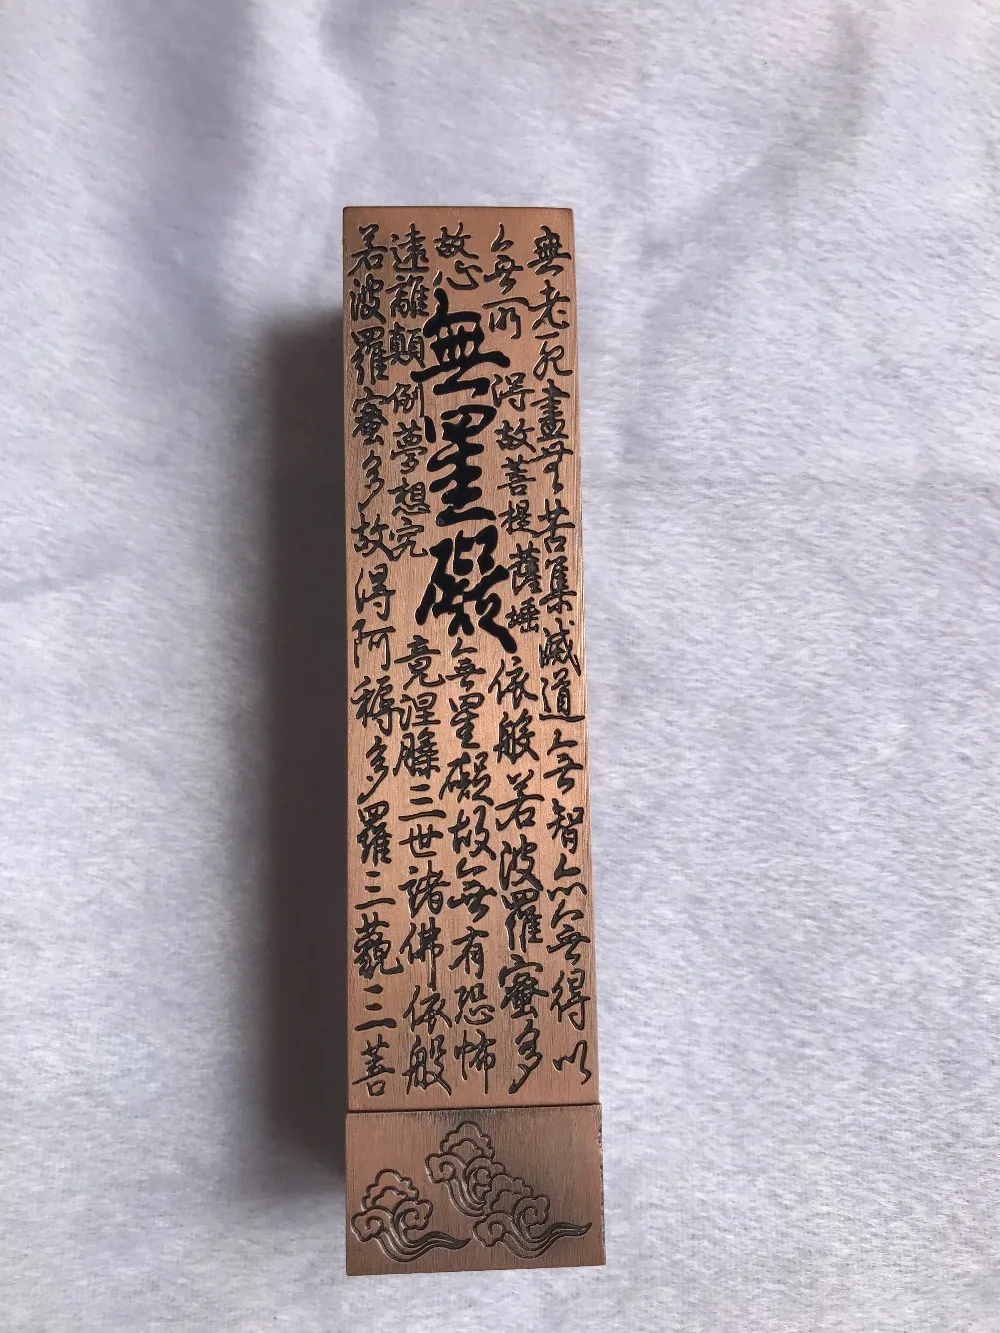 無老死盡無苦集滅道無智亦無得以
無所得故菩提薩埵依般若波羅蜜多
故心無罣礙無罣礙故無有恐怖
遠離顛倒夢想究竟涅槃三世諸佛依般
若波羅蜜多故得阿耨多羅三藐三菩